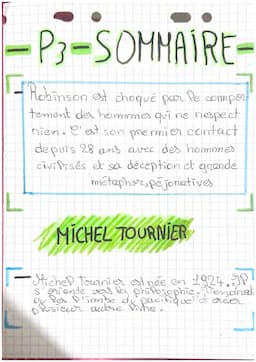 P3-SOMMAIRE-
Robinson est choqué par le compor-
tement des hommes qui ne respect
rien. C'est son premier contact
depuis 28 ans avec des hommes
civilisés et sa déception et grande
métaphor, péjoratives
MICHEL TOURNIER
Michel Tournier est née en 1924. Il
s'oriente vers la philosophie.
de pacifique et
plusieur autre livre.